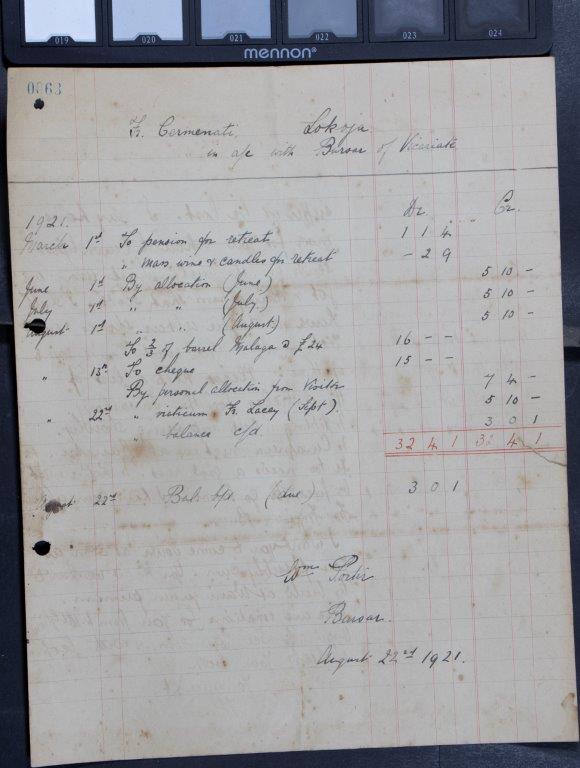 019 020 021 022 023 024
mennon®
0863
Fr. Cermenati, Lokoja
in a/c with Bursar of Vicariate
Dr. Cr.
1921.
March 1st To pension for retreat 1 1 4
" Mass, wine & candles for retreat - 2 9
June 1st By allocation (June) 5 10 -
July 1st " " (July) 5 10 -
August 1st " " (August) 5 10 -
To 2/3 of barrel Malaga @ £24 16 - -
" 13th To cheque 15 - -
By personal allocation from Visitor 7 4 -
" 22nd " viaticum Fr. Lacey (Sept). 5 10 -
" balance c/d 3 0 1
32 4 1 32 4 1
August 22nd Bal. b/d. (due) 3 0 1
Wm Porter
Bursar.
August 22nd 1921.